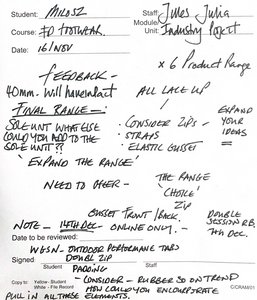 Student: MILOSZ
Staff: Jules Julia
Course: FD FOOTWEAR
Module/Unit: Industry Project
Date: 16/NOV
FEEDBACK -
x 6 Product Range
40mm - will have
ALL LACE UP
FINAL RANGE -
SOLE UNIT WHAT ELSE
COULD YOU ADD TO THE
SOLE UNIT??
- CONSIDER ZIPS -
- STRAPS
- ELASTIC GUSSET
EXPAND
YOUR
IDEAS
'EXPAND THE RANGE'
NEED TO OFFER -
THE RANGE
'CHOICE'
ZIP
GUSSET FRONT/BACK.
NOTE - 14TH DEC - ONLINE ONLY.
DOUBLE
SESSION
7th DEC.
Date to be reviewed:
WGSN - OUTDOOR PERFORMANCE TABS
DOUBL ZIP
Signed
Student
Staff
PADDING
Copy to: Yellow - Student
White - File Record
- CONSIDER - RUBBER SO ON TREND
HOW COULD YOU ENCORPORATE
PULL IN ALL THESE ELEMENTS.